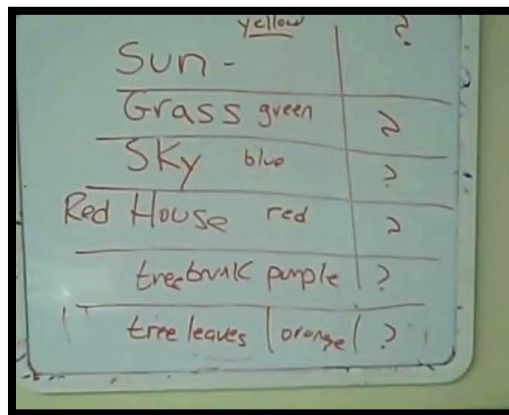 yellow ?
Sun -
Grass green ?
Sky blue ?
Red House red ?
treetrunk purple ?
tree leaves orange ?